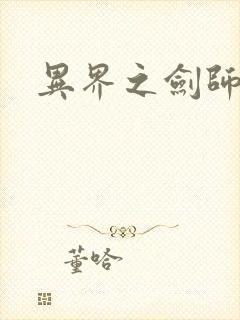 異界之劍師
董哈